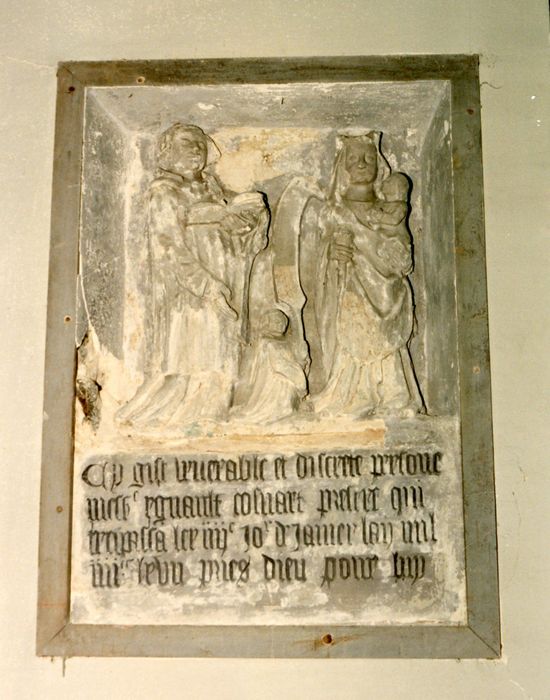 Cy gist venerable et discrete persone
mess^e eguault cosnart prestre qui
trespassa le iiij^e jo^r d'Janvier lan mil
iiij^c pries dieu pour luy